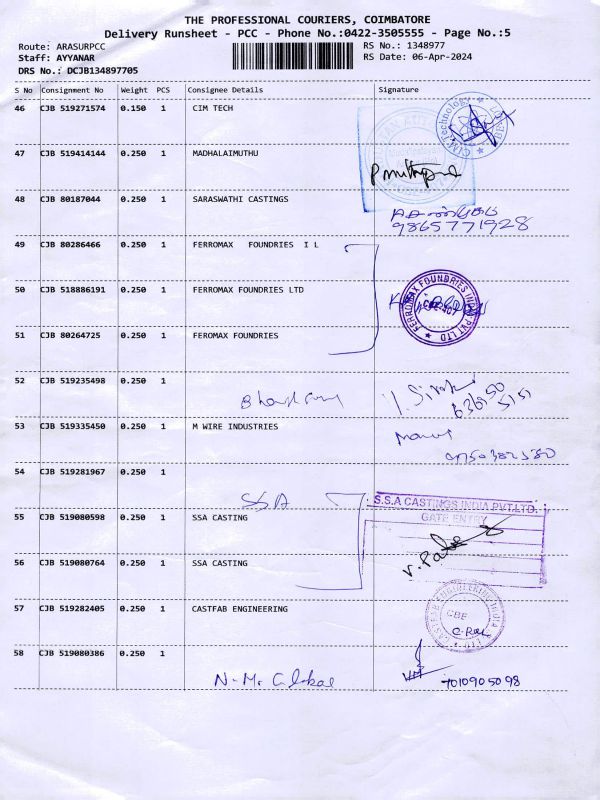 THE PROFESSIONAL COURIERS, COIMBATORE
Delivery Runsheet - PCC - Phone No.:0422-3505555 - Page No.:5
Route: ARASURPCC
RS No.: 1348977
Staff: AYYANAR
RS Date: 06-Apr-2024
DRS No.: DCJB134897705
S No Consignment No Weight PCS Consignee Details Signature
46 CJB 519271574 0.150 1 CIM TECH
47 CJB 519414144 0.250 1 MADHALAIMUTHU
48 CJB 80187044 0.250 1 SARASWATHI CASTINGS
9865771928
49 CJB 80286466 0.250 1 FERROMAX FOUNDRIES I L
50 CJB 518886191 0.250 1 FERROMAX FOUNDRIES LTD
FERROMAX FOUNDRIES INDIA PVT LTD
51 CJB 80264725 0.250 1 FEROMAX FOUNDRIES
52 CJB 519235498 0.250 1
53 CJB 519335450 0.250 1 M WIRE INDUSTRIES
54 CJB 519281967 0.250 1
SSA
S.S.A CASTINGS INDIA PVT.LTD.
GATE ENTRY
55 CJB 519080598 0.250 1 SSA CASTING
56 CJB 519080764 0.250 1 SSA CASTING
57 CJB 519282405 0.250 1 CASTFAB ENGINEERING
CBE
58 CJB 519080386 0.250 1
7010905098